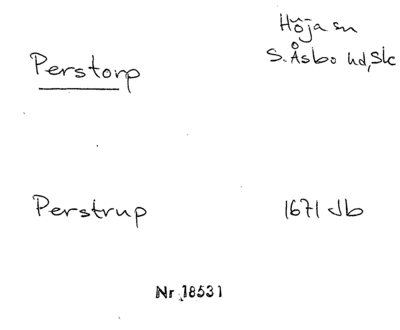 Höja sn
Perstorp
S. Åsbo hd, Sk
Perstrup
1671 Jb
Nr 18531